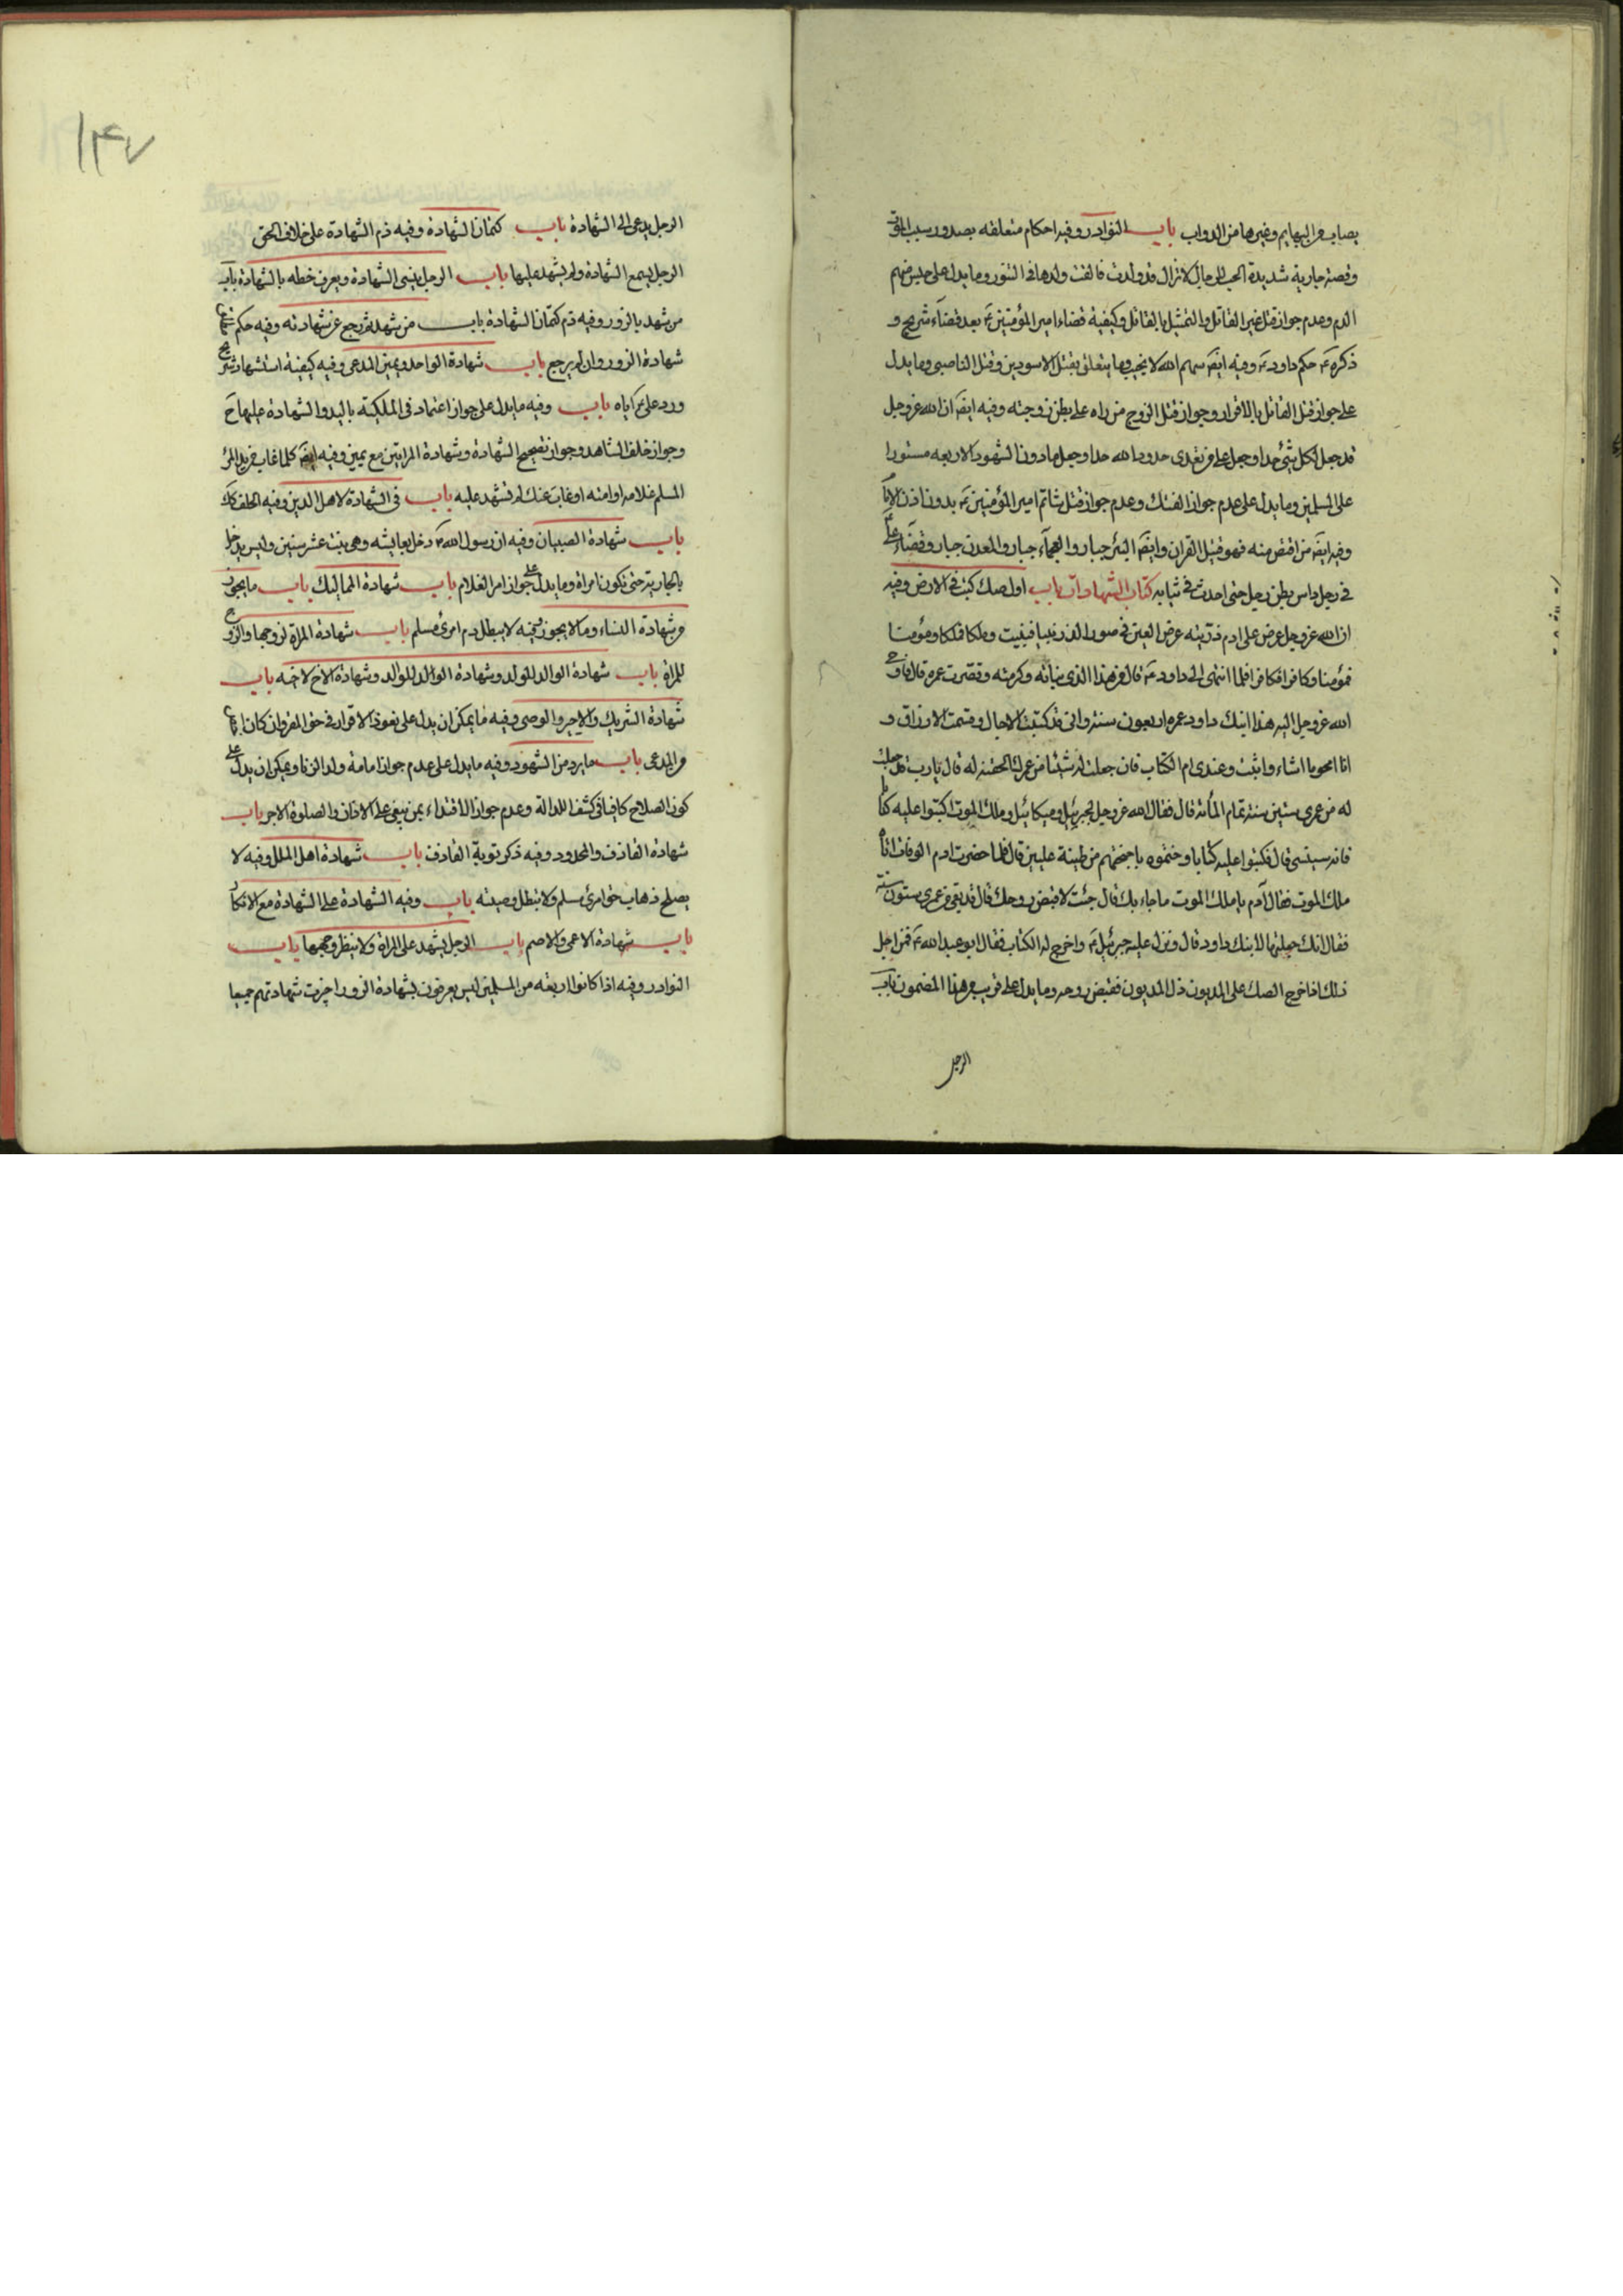 يصاب من البهايم وغيرها من الدواب باب النوادر وفيه احكام متعلقه بصدور سبب الموت
وقصة جارية شديدة الحب للرجال لا تزال قد ولدت فالقت ولدها فى التنور وما يدل على حبس متهم
الدم وعدم جواز قتل غير القاتل والتمثيل بالقاتل وكيفية قضاء امير المؤمنين ع بعد قضاء شريح و
ذكره ع حكم داود ع وفيه ايضَ سهام الله لا يجيب وما يتعلق بقتل الاسودين وقتل الناصبى وما يدل
على جواز قتل القاتل بالاقرار وجواز قتل الزوج من راه على بطن زوجته وفيه ايضَ ان الله عزوجل
قد جعل لكل شئ حدا وجعل على من تعدى حدود الله حدا وجعل مادون الشهود الاربعه مستورا
على المسلمين وما يدل على عدم جواز الفتك وعدم جواز قتل شاتم امير المؤمنين ع بدون اذن الامام
وفيه ايضَ من اقتص منه فهو قتيل القران وايضَ البئر جبار والعجماء جبار والمعدن جبار وقضاء على
فى رجل داس بطن رجل حتى احدث فى ثيابه كتاب الشهادات باب اول صك كتب فى الارض وفيه
ان الله عزوجل عرض على ادم ذريته عرض العين فى صور الذر نبيا فنبيا وملكا فملكا ومؤمنا
فمؤمنا وكافرا فكافرا فلما انتهى الى داود ع قال من هذا الذى نبأته وكرمته وقصرت عمره قال فاوحى
الله عزوجل اليه هذا ابنك داود عمره اربعون سنة وانى قد كتبت الاجال وقسمت الارزاق و
انا امحو ما اشاء واثبت وعندى ام الكتاب فان جعلت له شيئا من عمرك الحقته له قال يا رب قد جعلت
له من عمرى ستين سنة تمام المأئة قال فقال الله عزوجل لجبرئيل وميكائيل وملك الموت اكتبوا عليه كتابا
فانه سينسى قال فكتبوا عليه كتابا وختموه باجنحتهم من طينة عليين قال فلما حضرت ادم الوفات اتاه
ملك الموت فقال ادم يا ملك الموت ما جاء بك قال جئت لاقبض روحك قال قد بقى من عمرى ستون سنة
فقال انك جعلتها لابنك داود قال ونزل عليه جبرئيل ع واخرج له الكتاب فقال ابو عبد الله ع فمن اجل
ذلك اذا خرج الصك على المديون ذل المديون فقبض روحه وما يدل على قريب من هذا المضمون باب
الرجل
١٤٧
الرجل يدعى الى الشهادة باب كتمان الشهادة وفيه ذم الشهادة على خلاف الحق
الرجل يسمع الشهادة ولم يشهد عليها باب الرجل ينسى الشهادة ويعرف خطه بالشهادة باب
من شهد بالزور وفيه ذم كتمان الشهادة باب من شهد ثم رجع عن شهادته وفيه حكم
شهادة الزور وان لم يرجع باب شهادة الواحد ويمين المدعى وفيه كيفية استشهاد شريح
ورد على ع اياه باب وفيه ما يدل على جواز اعتماد فى الملكية باليد والشهادة عليها ح
وجواز خلف الشاهد وجواز تصحيح الشهادة وشهادة المراتين مع يمين وفيه ايضَ كلما غاب من يد المرء
المسلم غلامه او امته او غاب عنك لم تشهد عليه باب فى الشهادة لاهل الدين وفيه الحلف كك
باب شهادة الصبيان وفيه ان رسول الله ص دخل بعايشه وهى بنت عشر سنين وليس يدخل
بالجارية حتى تكون امراة وما يدل على جواز امر الغلام باب شهادة المماليك باب ما يجوز
من شهادة النساء وما لا يجوز وفيه لا يبطل دم امرئ مسلم باب شهادة المراة لزوجها والزوج
للمراة باب شهادة الوالد للولد وشهادة الوالد للولد وشهادة الاخ لاخيه باب
شهادة الشريك والاجير والوصى وفيه ما يمكن ان يدل على نفوذ الاقرار فى حق المقر وان كان
من المدعى باب ما يرد من الشهود وفيه ما يدل على عدم جواز امامة ولد الزنا ويمكن ان يدل على
كون الصلاح كافيا فى كشف العدالة وعدم جواز الاقتداء بمن يبغى على الاذان والصلوة الاجر باب
شهادة القاذف والمحدود وفيه ذكر توبة القاذف باب شهادة اهل الملل وفيه لا
يصلح ذهاب حق امرئ مسلم ولا تبطل وصيته باب وفيه الشهادة على الشهادة مع الانكار
باب شهادة الاعمى والاصم باب الرجل يشهد على المراة ولا ينظر وجهها باب
النوادر وفيه اذا كانوا اربعه من المسلمين ليس يعرفون بشهادة الزور اجزت شهادتهم جميعا